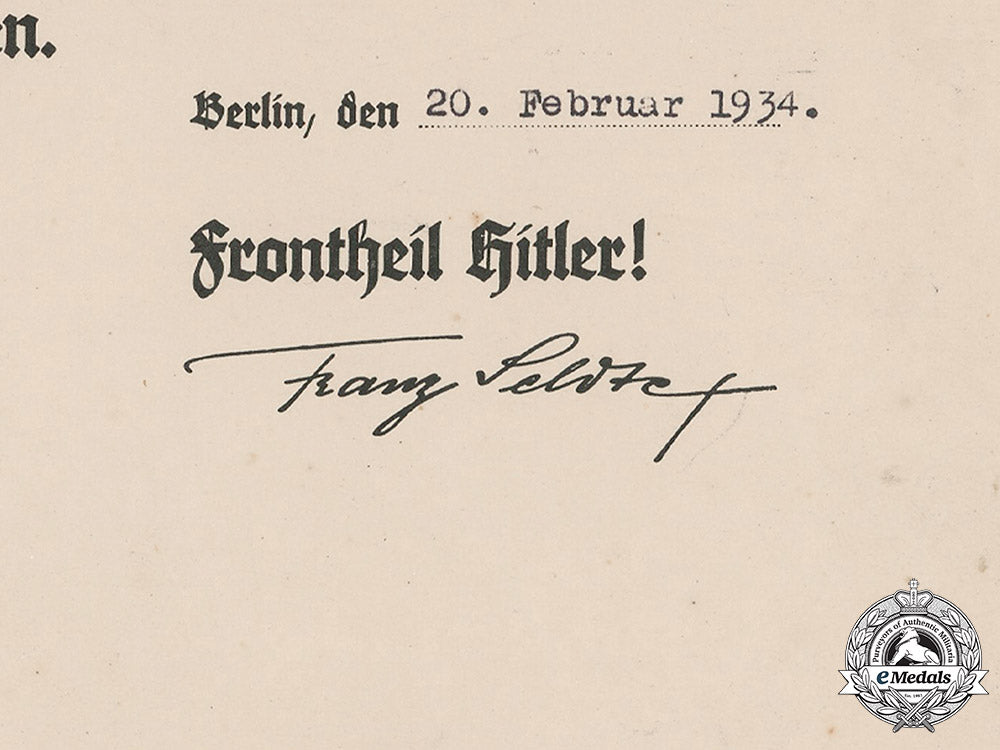 en.
Berlin, den 20. Februar 1934.
Frontheil Hitler!
Franz Seldte
Purveyors of Authentic Militaria
eMedals